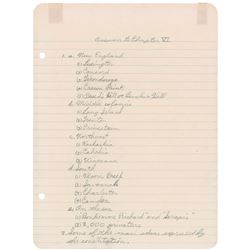 Answers to Chapter VI
1. a. New England
(1) Lexington
(2) Concord
(3) Ticonderoga
(4) Crown Point
(5) Breed's Hill or Bunker Hill
b. Middle colonies
(1) Long Island
(2) Trenton
(3) Princeton
c. Northwest
(1) Kaskaskia
(2) Cahokia
(3) Vincennes
d. South
(1) Moore's Creek
(2) Savannah
(3) Charleston
(4) Camden
e. On the sea
(1) Bonhomme Richard and "Serapis"
(2) 2,000 privateers
2. Some of the main ideas expressed by
the constitution.